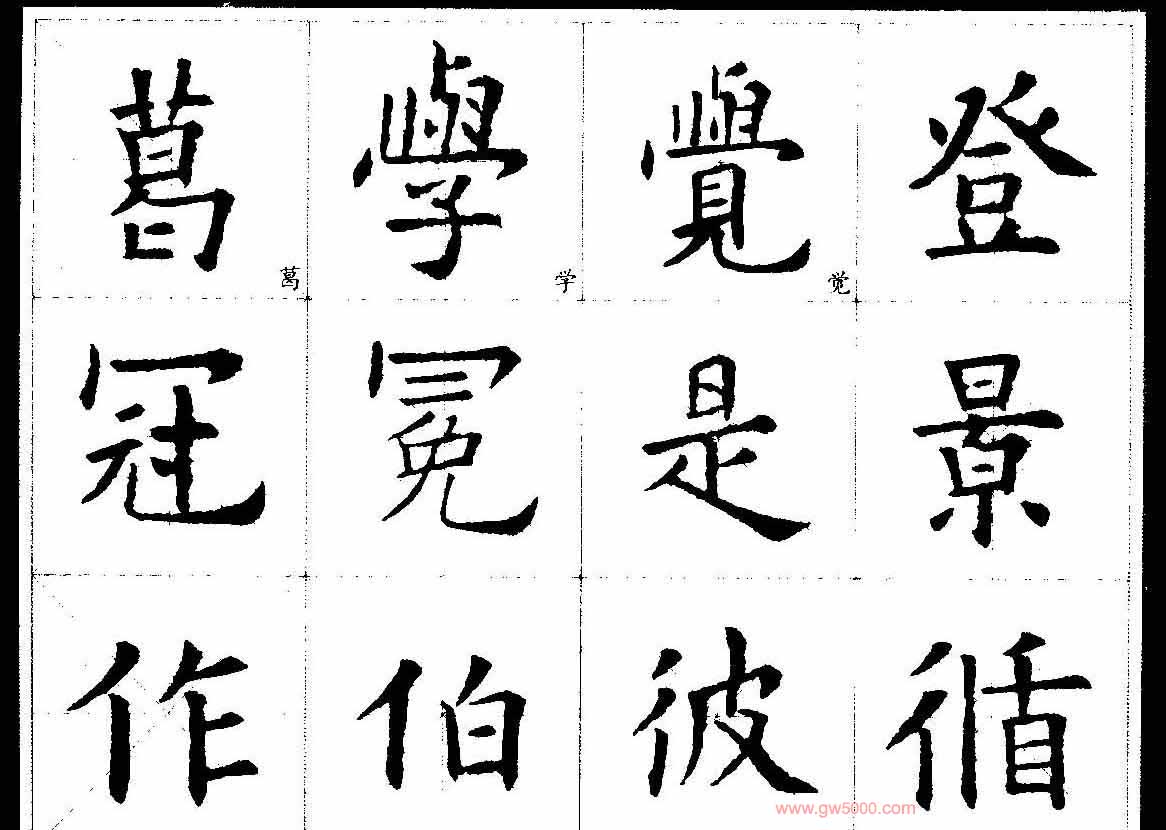 葛 學 覺 登
葛 学 觉
冠 冕 是 景
作 伯 彼 循
www.gw5000.com